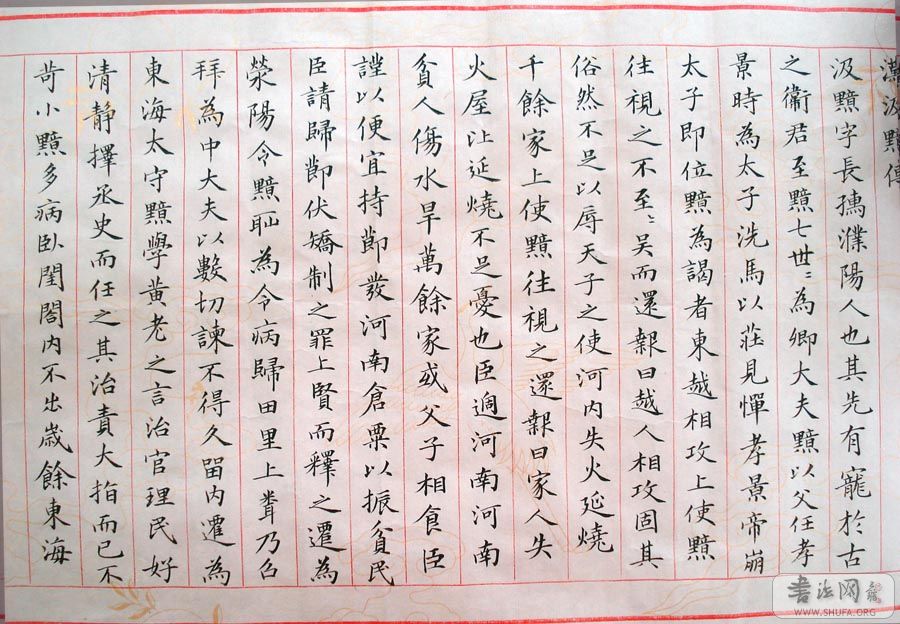 漢汲黯傳
汲黯字長孺濮陽人也其先有寵於古
之衛君至黯七世〻為卿大夫黯以父任孝
景時為太子洗馬以莊見憚孝景帝崩
太子即位黯為謁者東越相攻上使黯
往視之不至〻吴而還報曰越人相攻固其
俗然不足以辱天子之使河内失火延燒
千餘家上使黯往視之還報曰家人失
火屋比延燒不足憂也臣過河南河南
貧人傷水旱萬餘家或父子相食臣
謹以便宜持節發河南倉粟以振貧民
臣請歸節伏矯制之罪上賢而釋之遷為
滎陽令黯恥為令病歸田里上聞乃召
拜為中大夫以數切諫不得久留内遷為
東海太守黯學黄老之言治官理民好
清静擇丞史而任之其治責大指而已不
苛小黯多病臥閨閤内不出歲餘東海
书法网
WWW.SHUFA.ORG